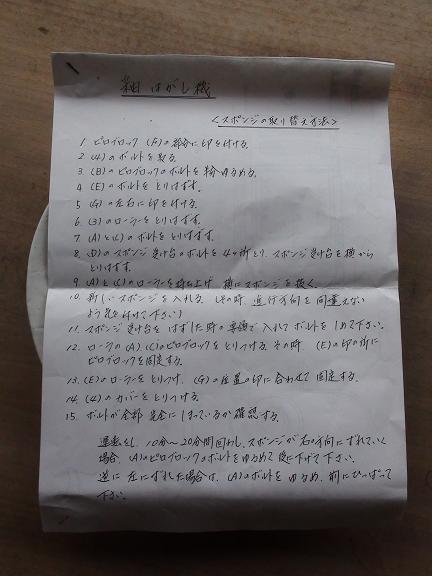 はがし機
<スポンジの取り替え方法>
1 ピロブロック(A)の部分に印を付ける。
2 (4)のボルトを取る。
3 (B)のピロブロックのボルトを ゆるめる。
4 (E)のボルトをとりはずす。
5 (G)の左右に印を付ける。
6 (3)のローラーをとりはずす。
7 (A)と(C)のボルトをとりはずす。
8 (D)のスポンジ受け台のボルトを4ヶ所とり、スポンジ受け台を横から
とりはずす。
9 (A)と(C)のローラーを持ち上げ 横にスポンジを抜く。
10. 新しいスポンジを入れる (その時、進行方向を間違えない
よう気を付けて下さい)
11. スポンジ受け台を はずした時の要領で入れてボルトを しめて下さい。
12. ローラの(A),(C)のピロブロックをとりつける。その時、(E)の印の所に
ピロブロックを固定する。
13. (E)のローラーをとりつけ、(G)の位置の印に合わせて固定する。
14. (4)のカバーをとりつける。
15. ボルトが全部完全にしまっているか確認する。
運転をし、10分〜20分間回わし、スポンジが右の方向にずれていく
場合、(A)のピロブロックのボルトをゆるめて後に下げて下さい。
逆に左にずれた場合は、(A)のボルトをゆるめ、前にひっぱって
下さい。